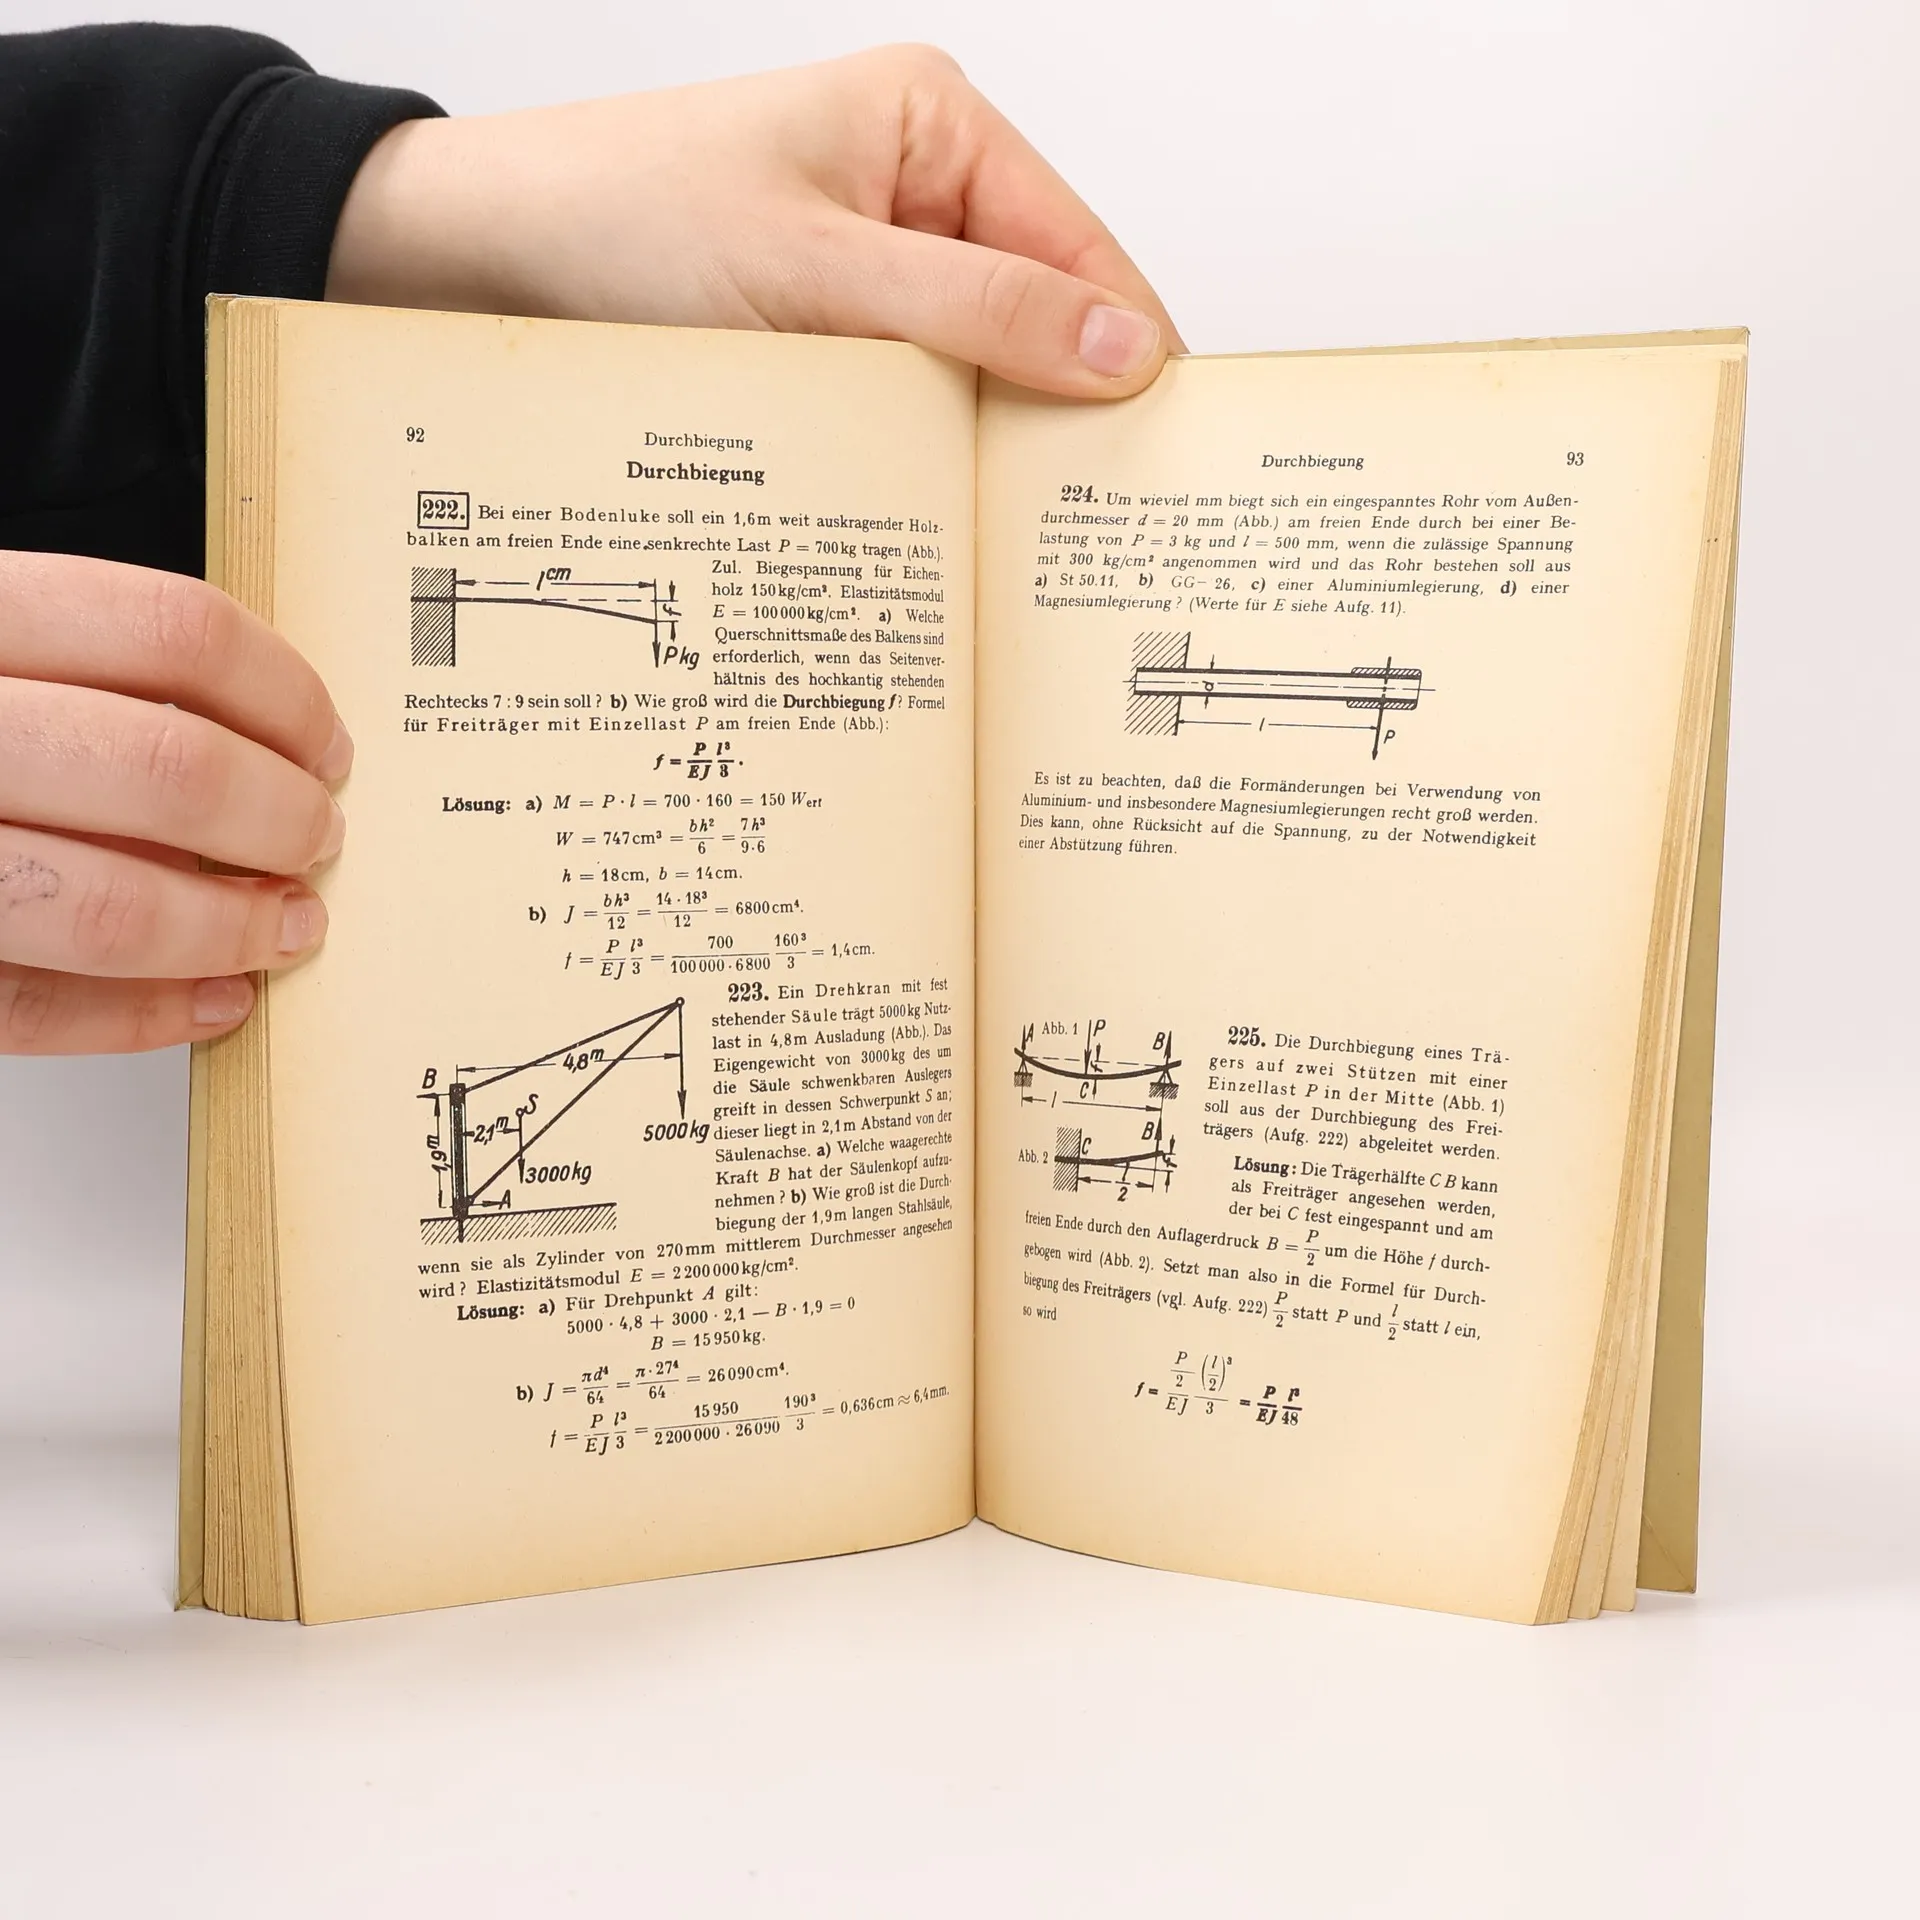 92
Durchbiegung
Durchbiegung
222. Bei einer Bodenluke soll ein 1,6m weit auskragender Holz-
balken am freien Ende eine senkrechte Last P = 700kg tragen (Abb.).
l cm
f
P kg
Zul. Biegespannung für Eichen-
holz 150kg/cm². Elastizitätsmodul
E = 100000kg/cm². a) Welche
Querschnittsmaße des Balkens sind
erforderlich, wenn das Seitenver-
hältnis des hochkantig stehenden
Rechtecks 7 : 9 sein soll? b) Wie groß wird die Durchbiegung f? Formel
für Freiträger mit Einzellast P am freien Ende (Abb.):
f = P/EJ l³/3.
Lösung: a) M = P · l = 700 · 160 = 150 Werf
W = 747cm³ = bh²/6 = 7h³/9·6
h = 18cm, b = 14cm.
b) J = bh³/12 = 14 · 18³/12 = 6800cm⁴.
f = P/EJ l³/3 = 700/100000 · 6800 160³/3 = 1,4cm.
B
4,8m
S
2,1m
1,9m
5000kg
3000kg
A
223. Ein Drehkran mit fest
stehender Säule trägt 5000kg Nutz-
last in 4,8m Ausladung (Abb.). Das
Eigengewicht von 3000kg des um
die Säule schwenkbaren Auslegers
greift in dessen Schwerpunkt S an;
dieser liegt in 2,1m Abstand von der
Säulenachse. a) Welche waagerechte
Kraft B hat der Säulenkopf aufzu-
nehmen? b) Wie groß ist die Durch-
biegung der 1,9m langen Stahlsäule,
wenn sie als Zylinder von 270mm mittlerem Durchmesser angesehen
wird? Elastizitätsmodul E = 2200000kg/cm².
Lösung: a) Für Drehpunkt A gilt:
5000 · 4,8 + 3000 · 2,1 — B · 1,9 = 0
B = 15950kg.
b) J = πd⁴/64 = π·27⁴/64 = 26090cm⁴.
f = P/EJ l³/3 = 15950/2200000 · 26090 190³/3 = 0,636cm ≈ 6,4mm.
Durchbiegung
93
224. Um wieviel mm biegt sich ein eingespanntes Rohr vom Außen-
durchmesser d = 20 mm (Abb.) am freien Ende durch bei einer Be-
lastung von P = 3 kg und l = 500 mm, wenn die zulässige Spannung
mit 300 kg/cm² angenommen wird und das Rohr bestehen soll aus
a) St 50.11, b) GG- 26, c) einer Aluminiumlegierung, d) einer
Magnesiumlegierung? (Werte für E siehe Aufg. 11).
d
l
P
Es ist zu beachten, daß die Formänderungen bei Verwendung von
Aluminium- und insbesondere Magnesiumlegierungen recht groß werden.
Dies kann, ohne Rücksicht auf die Spannung, zu der Notwendigkeit
einer Abstützung führen.
A Abb. 1 P
B
f
C
l
Abb. 2
C
B
f
l/2
225. Die Durchbiegung eines Trä-
gers auf zwei Stützen mit einer
Einzellast P in der Mitte (Abb. 1)
soll aus der Durchbiegung des Frei-
trägers (Aufg. 222) abgeleitet werden.
Lösung: Die Trägerhälfte CB kann
als Freiträger angesehen werden,
der bei C fest eingespannt und am
freien Ende durch den Auflagerdruck B = P/2 um die Höhe f durch-
gebogen wird (Abb. 2). Setzt man also in die Formel für Durch-
biegung des Freiträgers (vgl. Aufg. 222) P/2 statt P und l/2 statt l ein,
so wird
f = P/2/EJ (l/2)³/3 = P/EJ l³/48